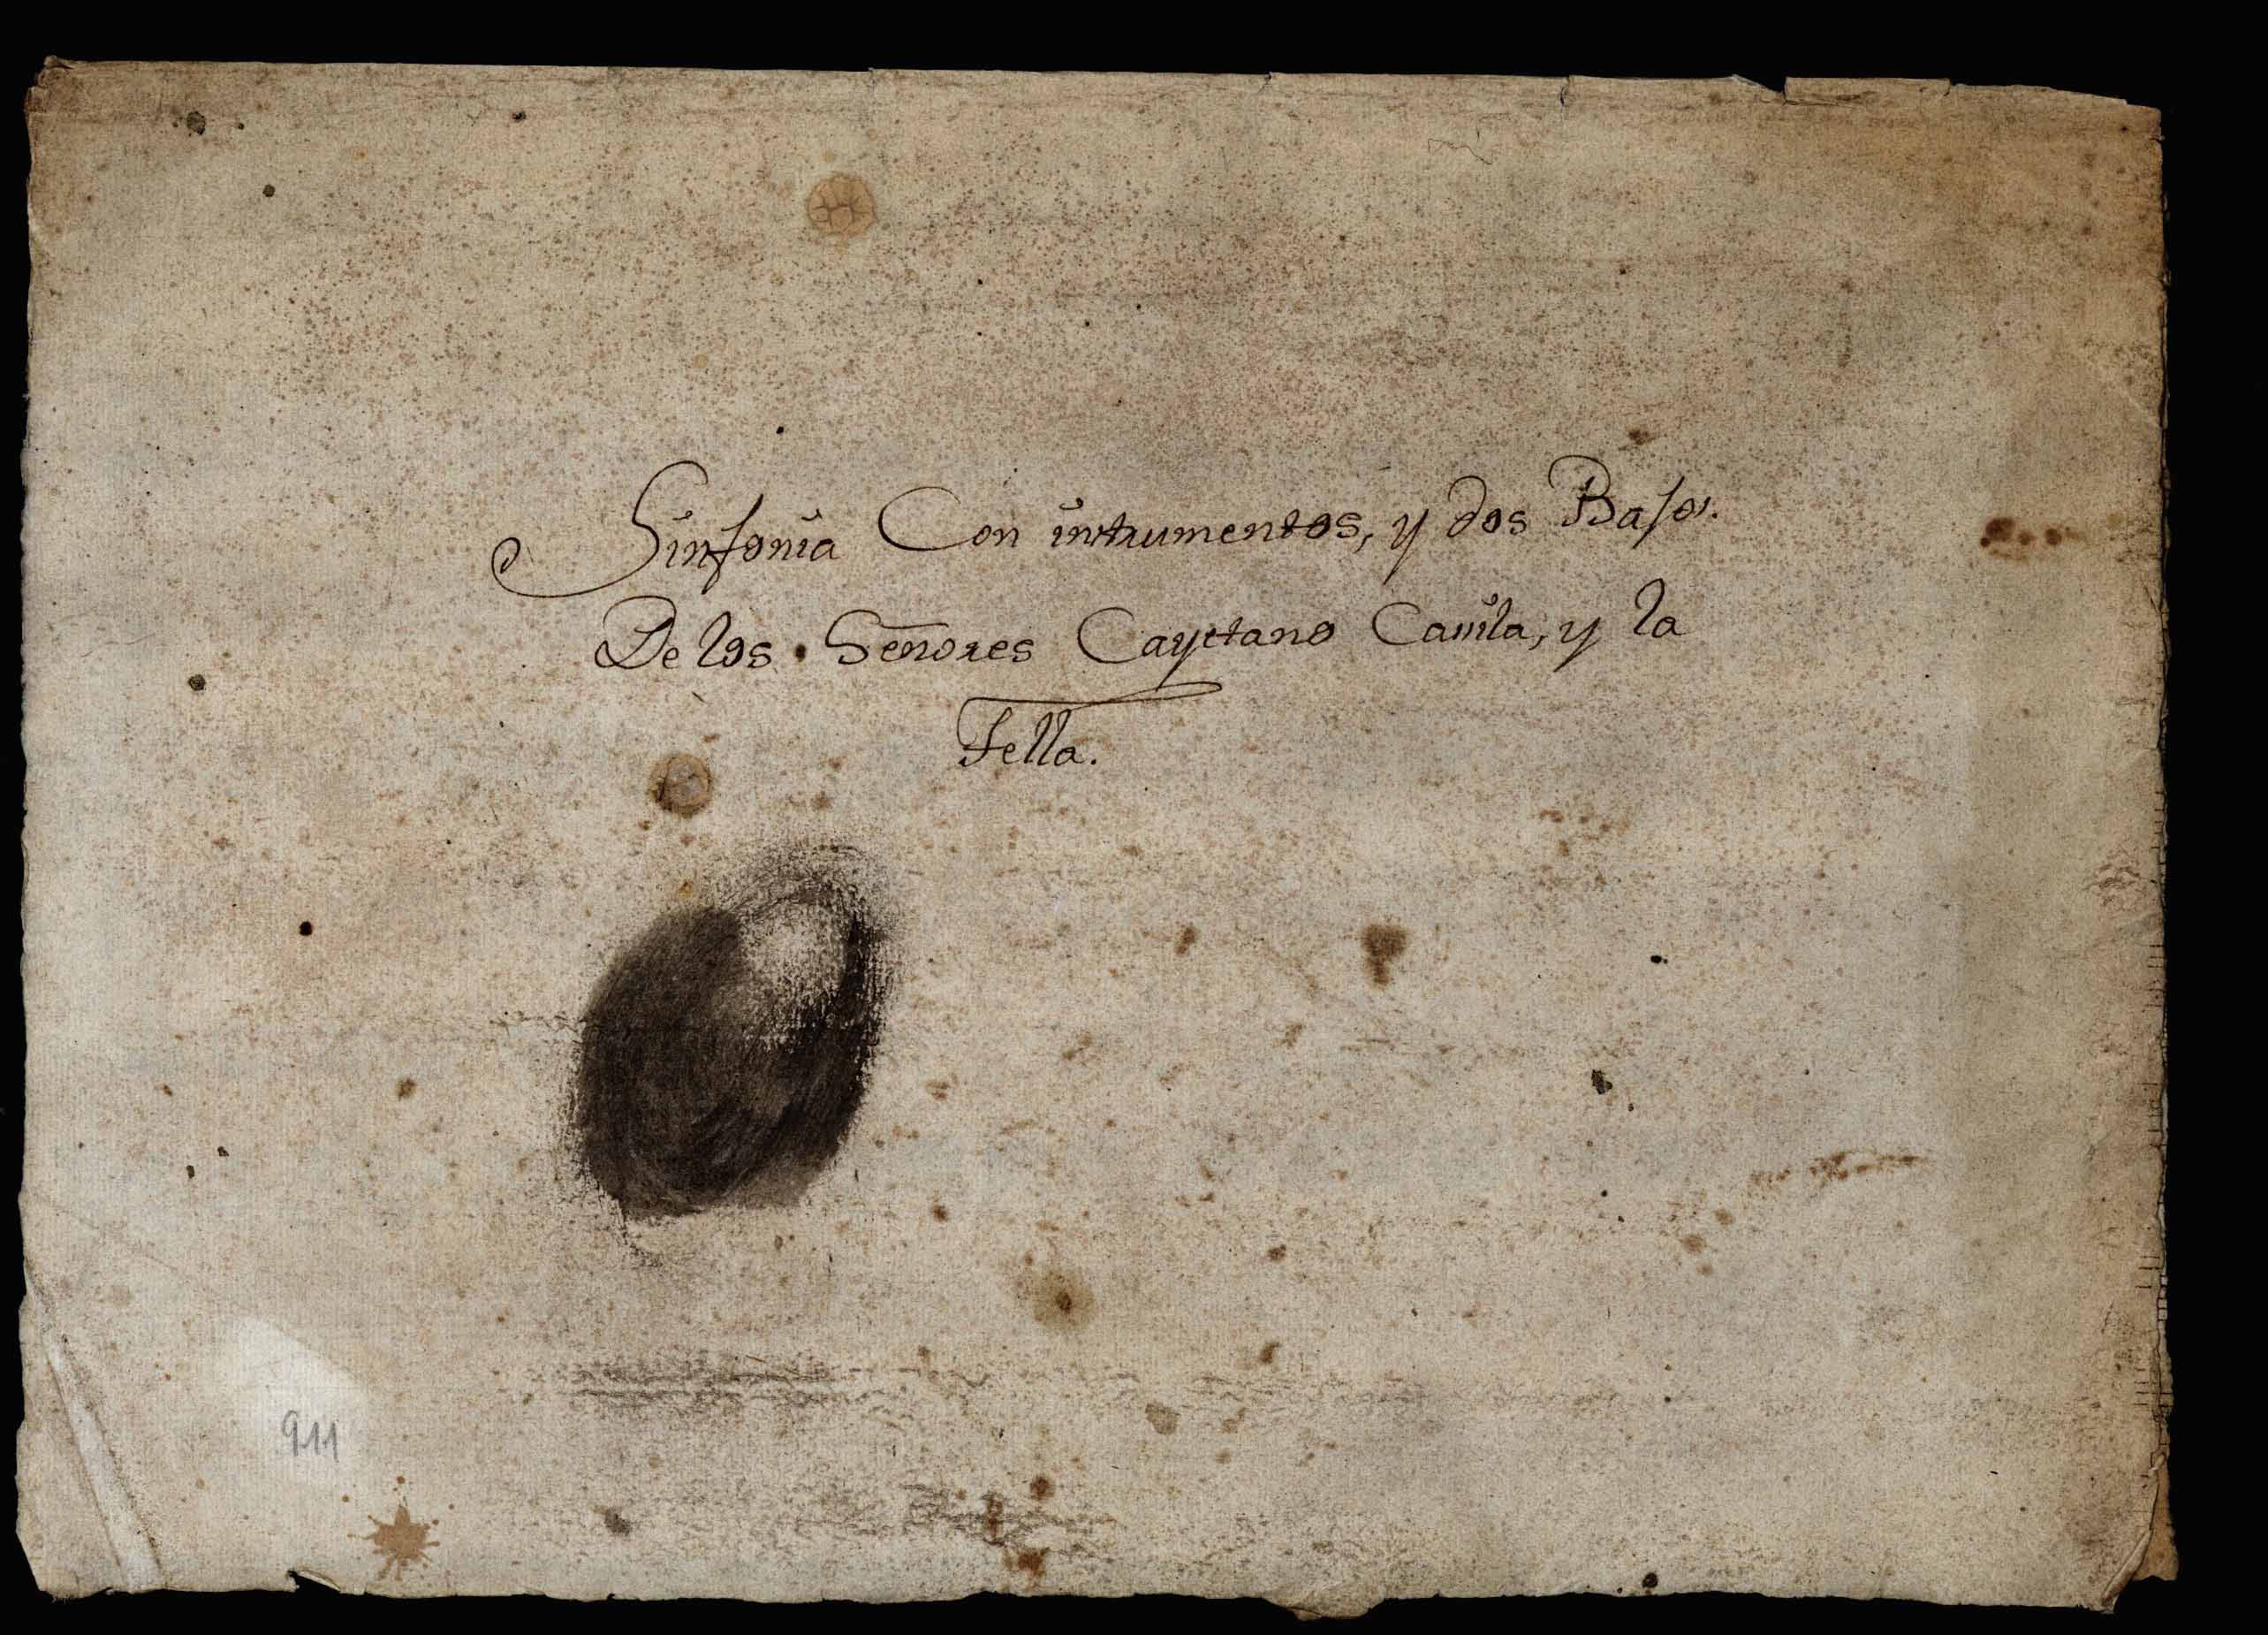 Sinfonia Con intrumentos, y dos Bajos.
De los Señores Cayetano Cavila, y la
Fella.
911